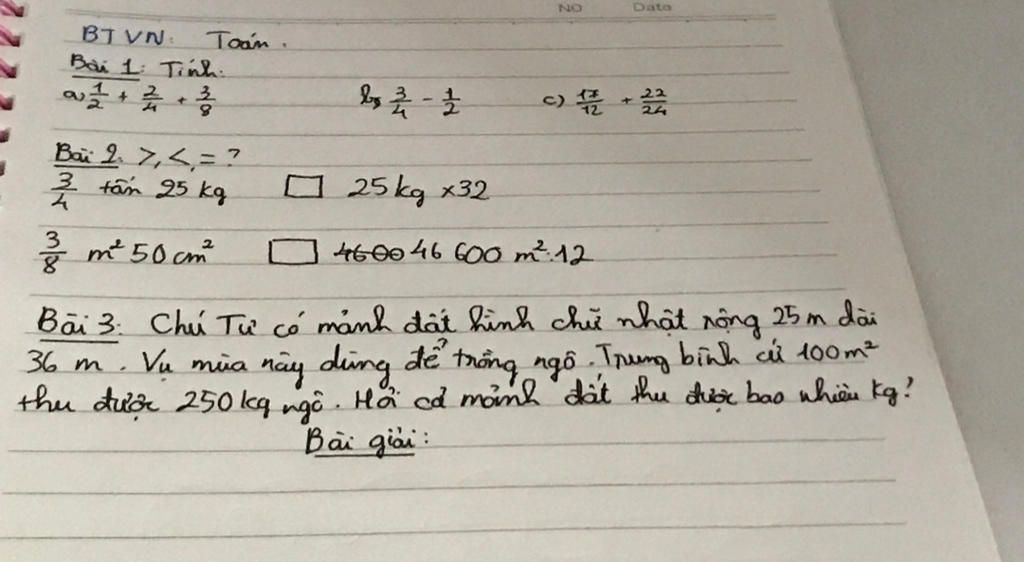 NO Date
BTVN: Toán.
Bài 1: Tính:
a) 1/2 + 2/4 + 3/8 b) 3/4 - 1/2 c) 17/12 + 22/24
Bài 2. >, <, = ?
3/4 tấn 25 kg □ 25 kg x32
3/8 m² 50 cm² □ 4600 46 600 m²:12
Bài 3: Chú Tư có mảnh đất hình chữ nhật rộng 25 m dài
36 m. Vụ mùa này dùng để trồng ngô. Trung bình cứ 100m²
thu được 250 kg ngô. Hỏi cả mảnh đất thu được bao nhiêu kg?
Bài giải: